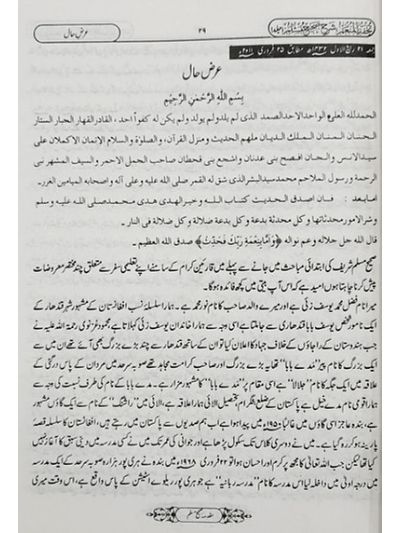 عرض حال
۲۹
جمعہ ۲۱ ربیع الاول ۱۴۳۲ھ مطابق ۲۵ فروری ۲۰۱۱ء
عرض حال
بِسْمِ اللّٰهِ الرَّحْمٰنِ الرَّحِيْمِ
الحمدلله العلی الواحد الاحد الصمد الذی لم یلد ولم یولد ولم یکن له کفوا احد ، القادر القهار الجبار الستار
الحسان المنان الملك الدیان ملهم الحدیث ومنزل القرآن، والصلوٰة والسلام الاتمان الاکملان علی
سیدالانس والجان افصح بنی عدنان واشجع بنی قحطان صاحب الجمل الاحمر والسیف المشهر نبی
الرحمة ورسول الملاحم محمد سیدالبشر الذی شق له القمر صلی الله علیه وعلی آله واصحابه المیامین الغرر۔
امابعد : فان اصدق الحدیث کتاب الله وخیر الهدی هدی محمد صلی الله علیه وسلم
وشر الامور محدثاتها وکل محدثة بدعة وکل بدعة ضلالة وکل ضلالة فی النار ۔
قال الله جل جلاله وعم نواله ﴿وَاَمَّا بِنِعْمَةِ رَبِّكَ فَحَدِّثْ﴾ صدق الله العظیم ۔
صحیح مسلم شریف کی ابتدائی مباحث میں جانے سے پہلے میں قارئین کرام کے سامنے اپنے تعلیمی سفر سے متعلق چند مختصر معروضات
پیش کرنا چاہتا ہوں امید ہے کہ اس آپ بیتی میں کچھ فائدہ ہوگا۔
میرا نام فضل محمد یوسف زئی ہے اور میرے والد صاحب کا نام نور محمد ہے۔ ہمارا سلسلہ نسب افغانستان کے مشہور شہر قندھار کے
ایک نامور شخص یوسف بابا قندھاری سے جاملتا ہے اسی وجہ سے ہمارا خاندان یوسف زئی کہلاتا ہے محمود غزنوی رحمۃ اللہ علیہ نے
جب ہندوستان کے راجاؤں کے خلاف جہاد کا اعلان کیا تو ان کے ساتھ قندھار سے چند بڑے بزرگ بھی آئے تھے ان میں سے
ایک بزرگ کا نام پیر "مدے بابا" تھا یہ بڑے بزرگ اور صاحب کرامت مجاہد تھے صوبہ سرحد میں مردان کے پاس درگئی کے
علاقہ میں ایک جگہ کا نام "جلالا" ہے اسی مقام پر "مدے بابا" کا مشہور مزار ہے۔ مدے بابا کے نام کی طرف نسبت کی وجہ سے
ہمارا قومی نام مدے خیل ہے پاکستان کے ضلع بٹگرام تحصیل الائی ہمارا علاقہ ہے، الائی میں "راشنگ" کے نام سے ایک گاؤں مشہور
ہے، بندہ عاجز اسی گاؤں میں غالبا ۱۹۵۰ء میں پیدا ہوا ہے اب ہم صدیوں سے پاکستان میں رہتے ہیں، افغانستان کا سلسلہ قصۂ
پارینہ ہو کر رہ گیا ہے۔ میں نے دوسری کلاس تک سکول پڑھا ہے اور جوانی کی عمر تک میں نے کسی مدرسہ میں دینی سبق کا آغاز نہیں
کیا تھا لیکن جب اللہ تعالیٰ کا مجھ پر کرم اور احسان ہوا تو ۲۲ فروری ۱۹۶۸ء میں بندہ نے ہری پور ہزارہ صوبہ سرحد کے ایک مدرسہ
میں درجہ اولیٰ میں داخلہ لیا اس مدرسہ کا نام "مدرسہ ربانیہ" ہے جو ہری پور ریلوے اسٹیشن کے پاس واقع ہے، اس وقت میری
مقدمہ صحیح مسلم